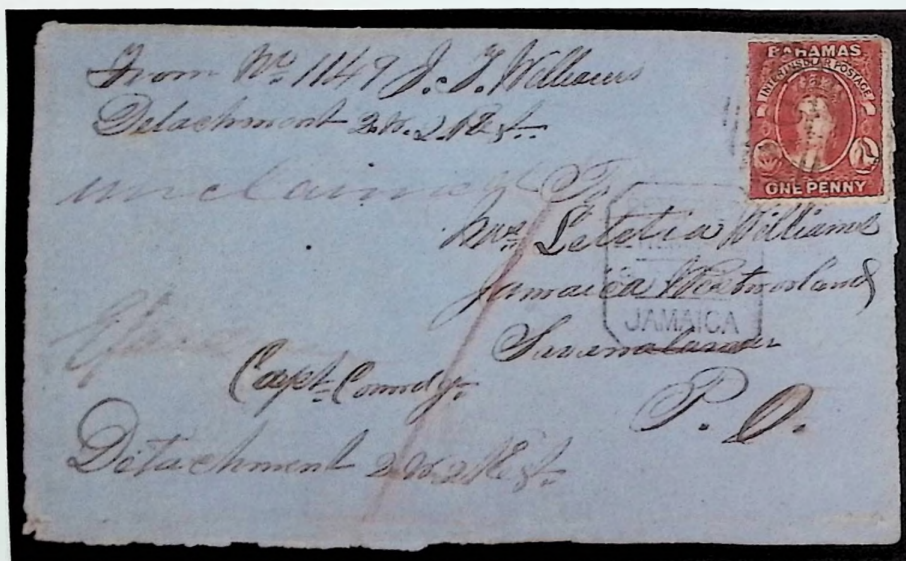 From No. 1149 J. J. Williams
Detachment 2. W. 2 Regt.
BAHAMAS
INTERINSULAR POSTAGE
ONE PENNY
unclaimed
To
Mrs Letetia Williams
Jamaica Westmorland
JAMAICA
P. O.
Capt. Commdg.
Detachment 2 W. 2 Regt.